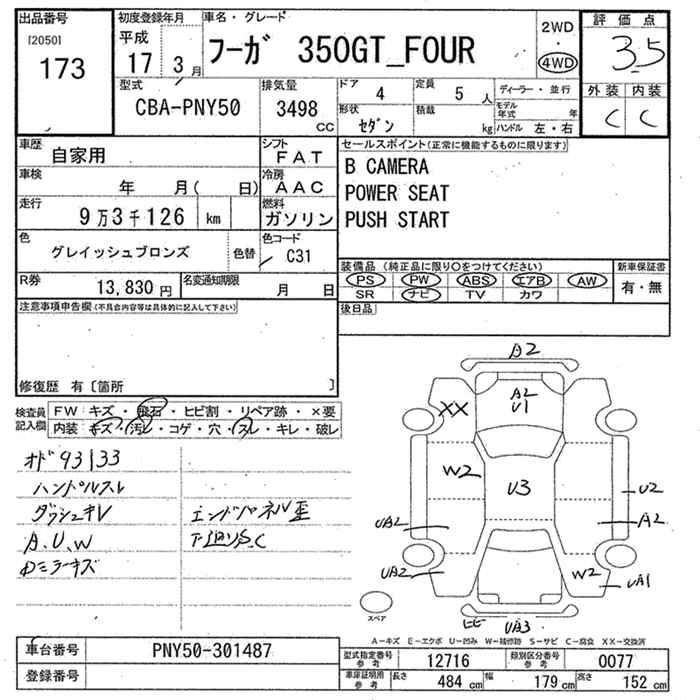 出品番号 初度登録年月 車名・グレード 2WD 評価点
[2050] 平成
173 17 3月 フーガ 350GT_FOUR 4WD 3.5
型式 排気量 ドア 4 定員 5 人 ディーラー・並行 外装 内装
CBA-PNY50 3498 CC 形状 セダン 積載 kg モデル年式 年 C C
ハンドル 左・右
車歴 自家用 シフト FAT セールスポイント(正常に機能するものに限ります)
車検 年 月( 日) 冷房 AAC B CAMERA
走行 9万3千126 km 燃料 ガソリン POWER SEAT
PUSH START
色 グレイッシュブロンズ 色替 色コード C31
装備品 (純正品に限り○をつけてください) 新車保証書
R券 13,830円 名変通知期限 月 日 PS PW ABS エアB AW 有・無
SR ナビ TV カワ
注意事項申告欄(不具合内容等は具体的に記入して下さい) 後日品
修復歴 有〔箇所 〕
検査員記入欄 FW: キズ・飛石・ヒビ割・リペア跡・×要
内装: キズ・汚レ・コゲ・穴・スレ・キレ・破レ
オド 93133
ハンドルスレ
ダッシュキレ エンドパネル歪
A、U、W 下廻りS、C
Dミラーキズ
A2
XX A2
U1
W2 U3 U2
UA2 A2
UA2 W2 UA1
スペア UA3
A-キズ E-エクボ U-凹み W-補修跡 S-サビ C-腐食 XX-交換済
車台番号 PNY50-301487 型式指定番号 参考 12716 類別区分番号 参考 0077
登録番号 車庫証明用 参考 長さ 484 cm 幅 179 cm 高さ 152 cm